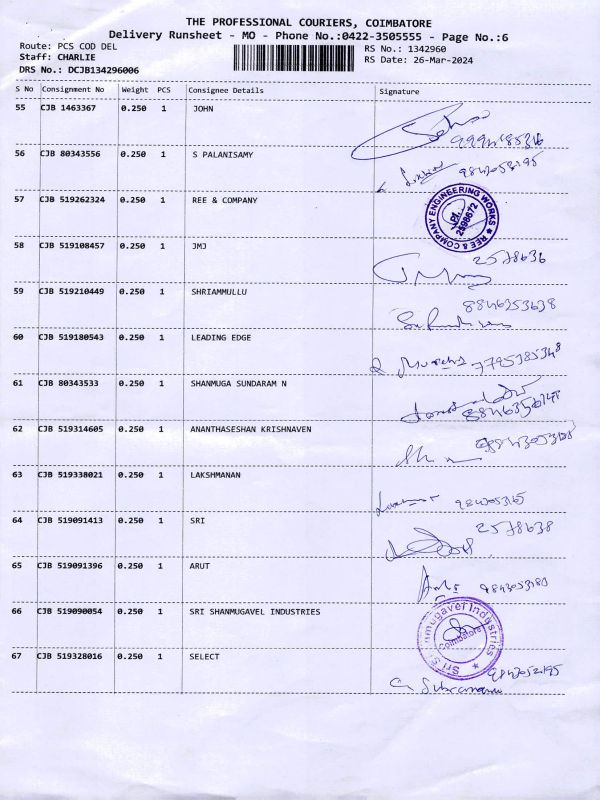 THE PROFESSIONAL COURIERS, COIMBATORE
Delivery Runsheet - MO - Phone No.:0422-3505555 - Page No.:6
Route: PCS COD DEL
RS No.: 1342960
Staff: CHARLIE
RS Date: 26-Mar-2024
DRS No.: DCJB134296006
S No Consignment No Weight PCS Consignee Details Signature
55 CJB 1463367 0.250 1 JOHN
56 CJB 80343556 0.250 1 S PALANISAMY
57 CJB 519262324 0.250 1 REE & COMPANY
REE & COMPANY ENGINEERING WORKS
PH. 2598672
58 CJB 519108457 0.250 1 JMJ
2578636
59 CJB 519210449 0.250 1 SHRIAMMULLU
8846353638
60 CJB 519180543 0.250 1 LEADING EDGE
7795385348
61 CJB 80343533 0.250 1 SHANMUGA SUNDARAM N
62 CJB 519314605 0.250 1 ANANTHASESHAN KRISHNAVEN
63 CJB 519338021 0.250 1 LAKSHMANAN
64 CJB 519091413 0.250 1 SRI
2578638
65 CJB 519091396 0.250 1 ARUT
66 CJB 519090054 0.250 1 SRI SHANMUGAVEL INDUSTRIES
Coimbatore
67 CJB 519328016 0.250 1 SELECT